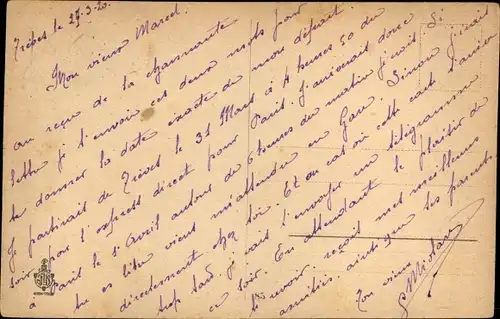 Trèves le 27-3-20.
Mon vieux Marcel.
au reçu de ta charmante
lettre je t'envoie ces deux mots pour
te donner la date exacte de mon départ.
Je partirai de Trèves le 31 Mars à 4 heures 50 du
soir par l'express direct pour Paris. J'arriverai donc
à Paris le 1er Avril autour de 6 heures du matin. Si
tu es libre viens m'attendre en Gare. Sinon j'irais
directement chez toi. Et au cas où cette carte
trop tard, je vais t'envoyer un télégramme
ce soir. En attendant le plaisir de
te revoir, reçois mes meilleures
amitiés ainsi que tes parents.
Ton vieux